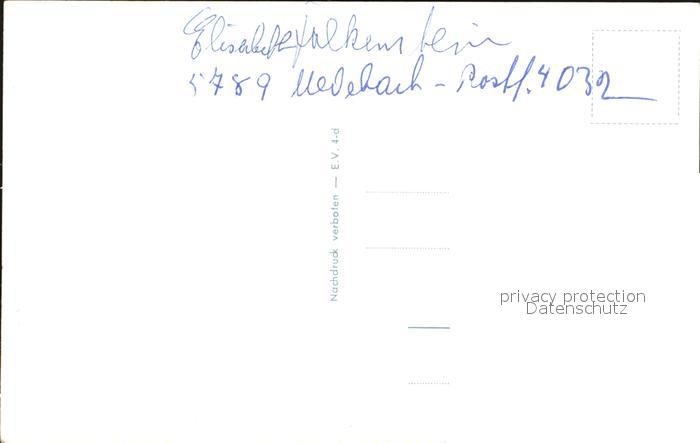 Elisabeth Falkenstein
5789 Medebach - Postf. 4032
Nachdruck verboten — E.V. 4-d
privacy protection
Datenschutz